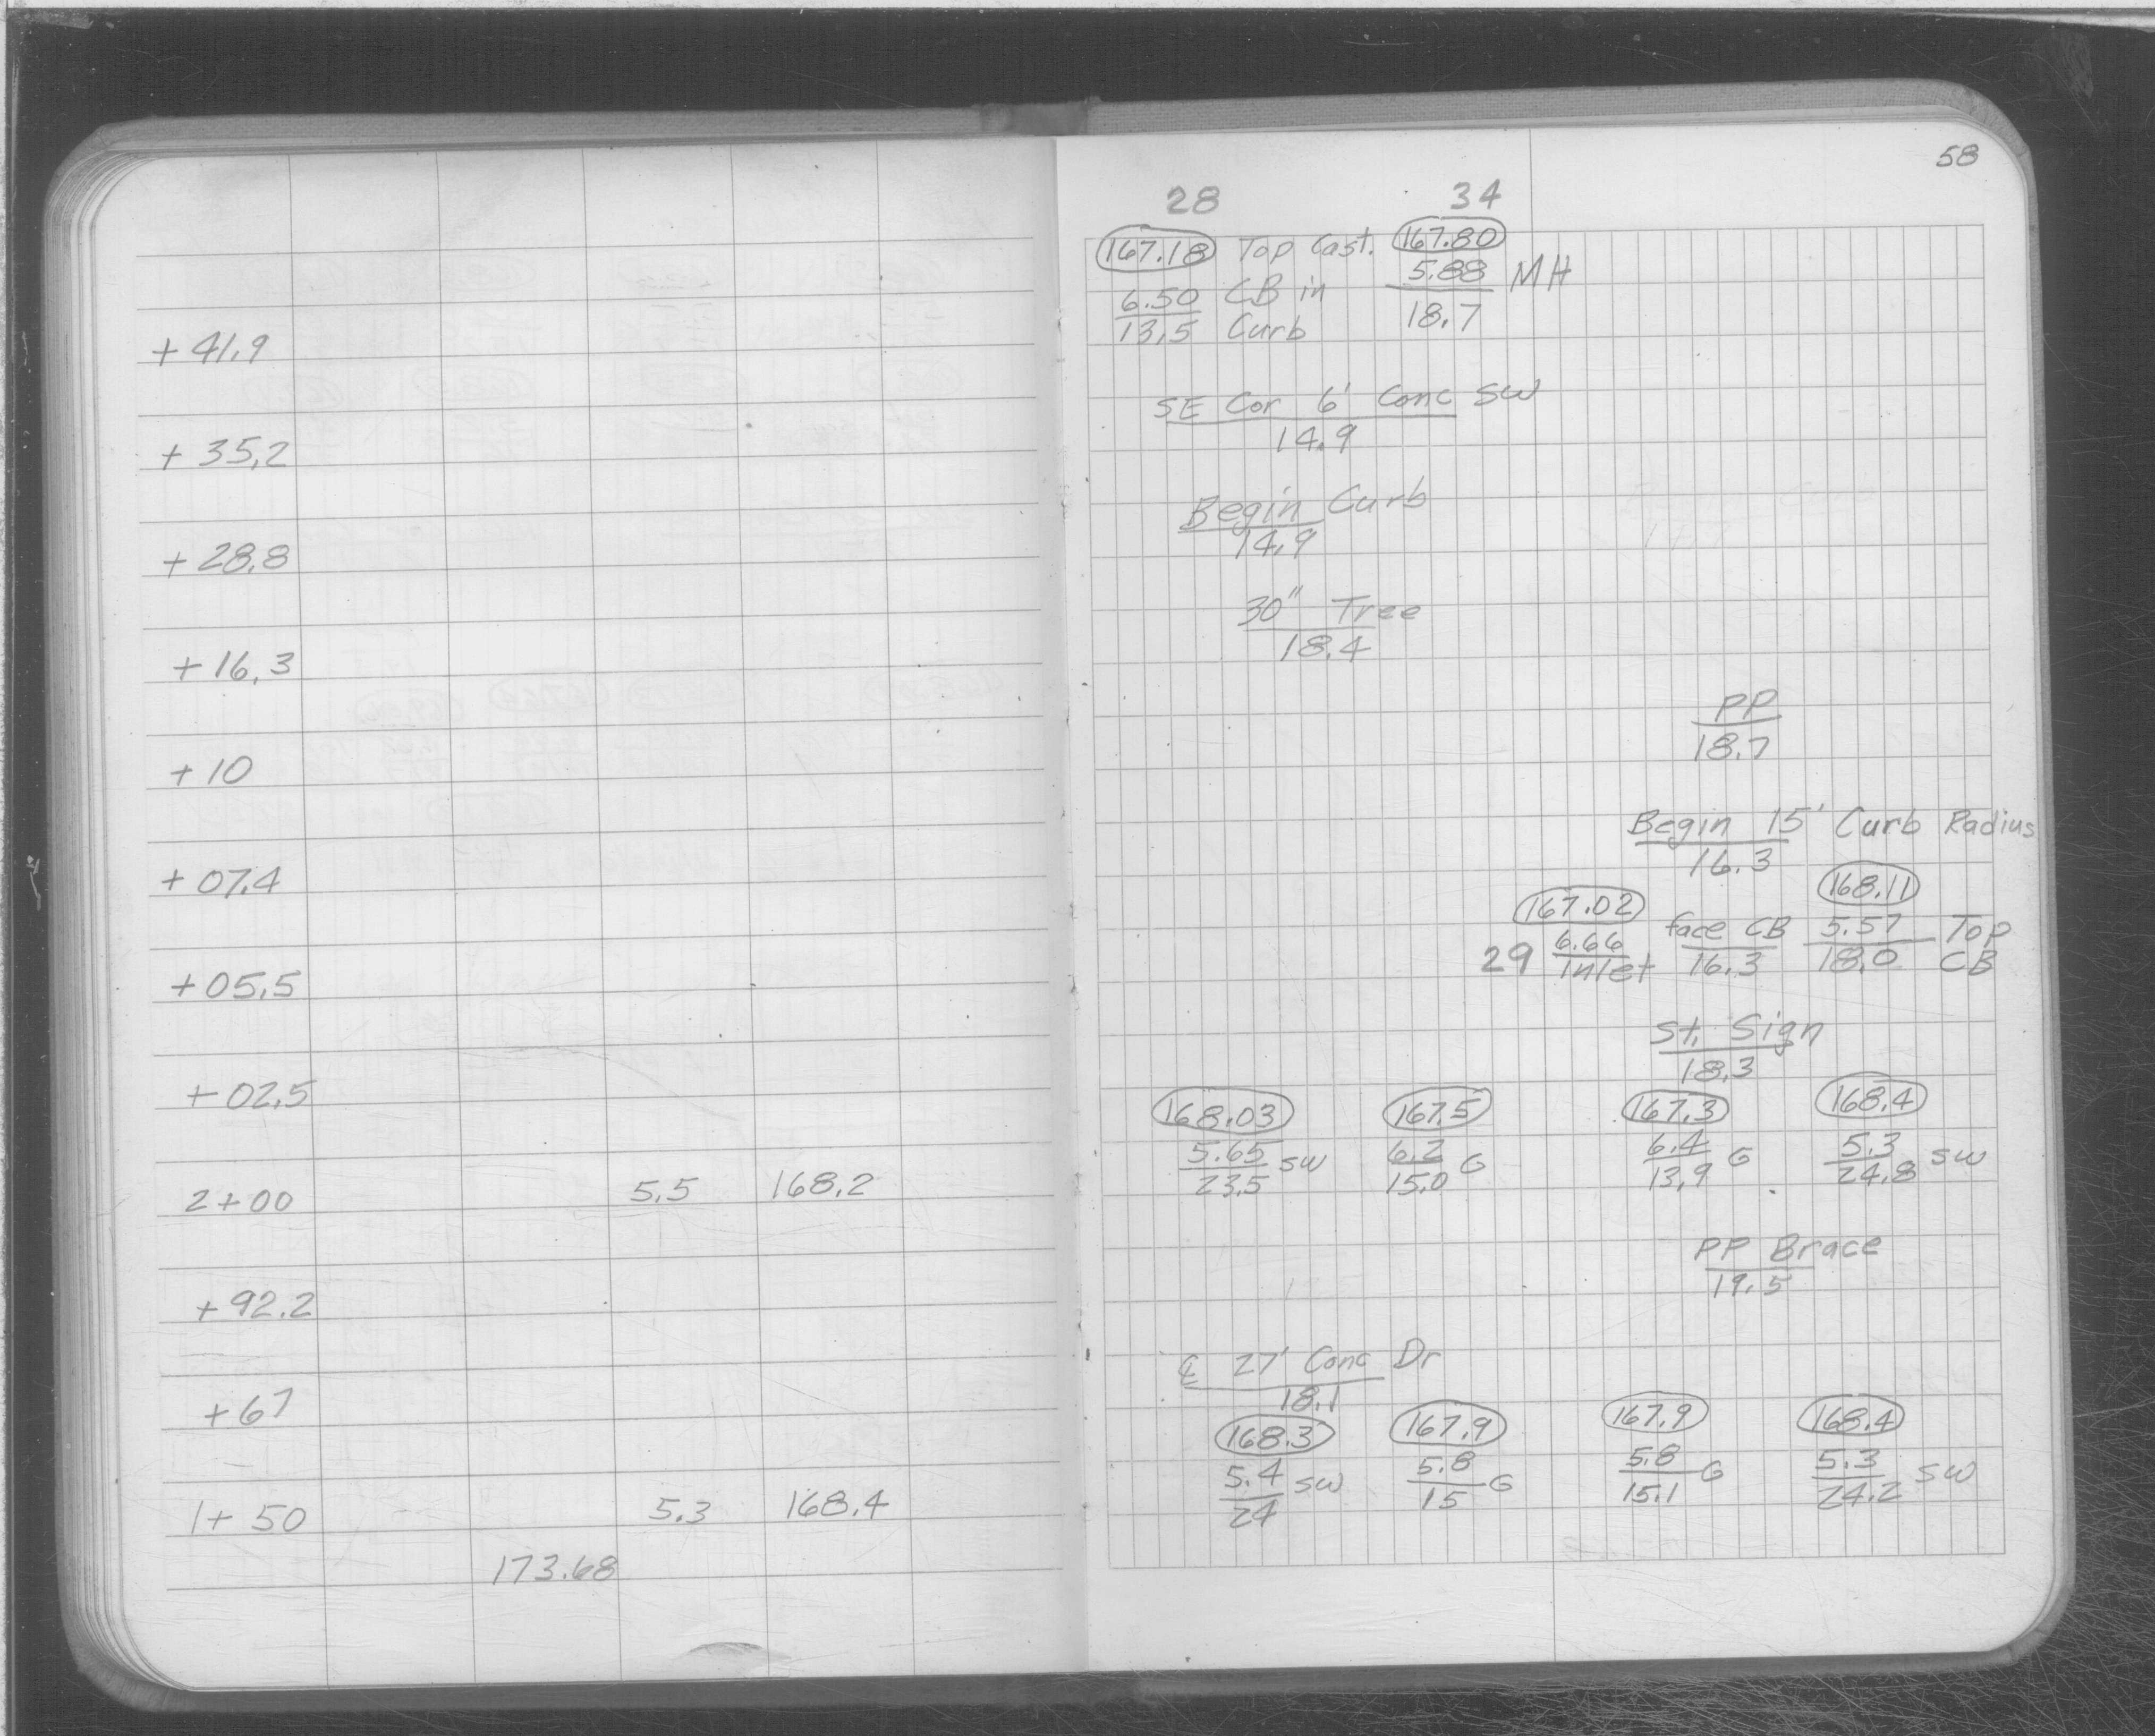 58
28 34
+ 41.9
167.18 Top Cast. 167.80
6.50 CB in 5.88 MH
13.5 Curb 18.7
+ 35.2
SE Cor 6' Conc SW
14.9
+ 28.8
Begin Curb
14.9
+ 16.3
30" Tree
18.4
+ 10
PP
18.7
+ 07.4
Begin 15' Curb Radius
16.3
+ 05.5
167.02 168.11
29 6.66 face CB 5.57 Top
Inlet 16.3 18.0 CB
+ 02.5
St. Sign
18.3
2+00 5.5 168.2
168.03 167.5 167.3 168.4
5.65 SW 6.2 G 6.4 G 5.3 SW
23.5 15.0 13.9 24.8
+ 92.2
PP Brace
19.5
+ 67
℄ 27' Conc Dr
18.1
1+ 50 5.3 168.4
168.3 167.9 167.9 168.4
5.4 SW 5.8 G 5.8 G 5.3 SW
24 15 15.1 24.2
173.68